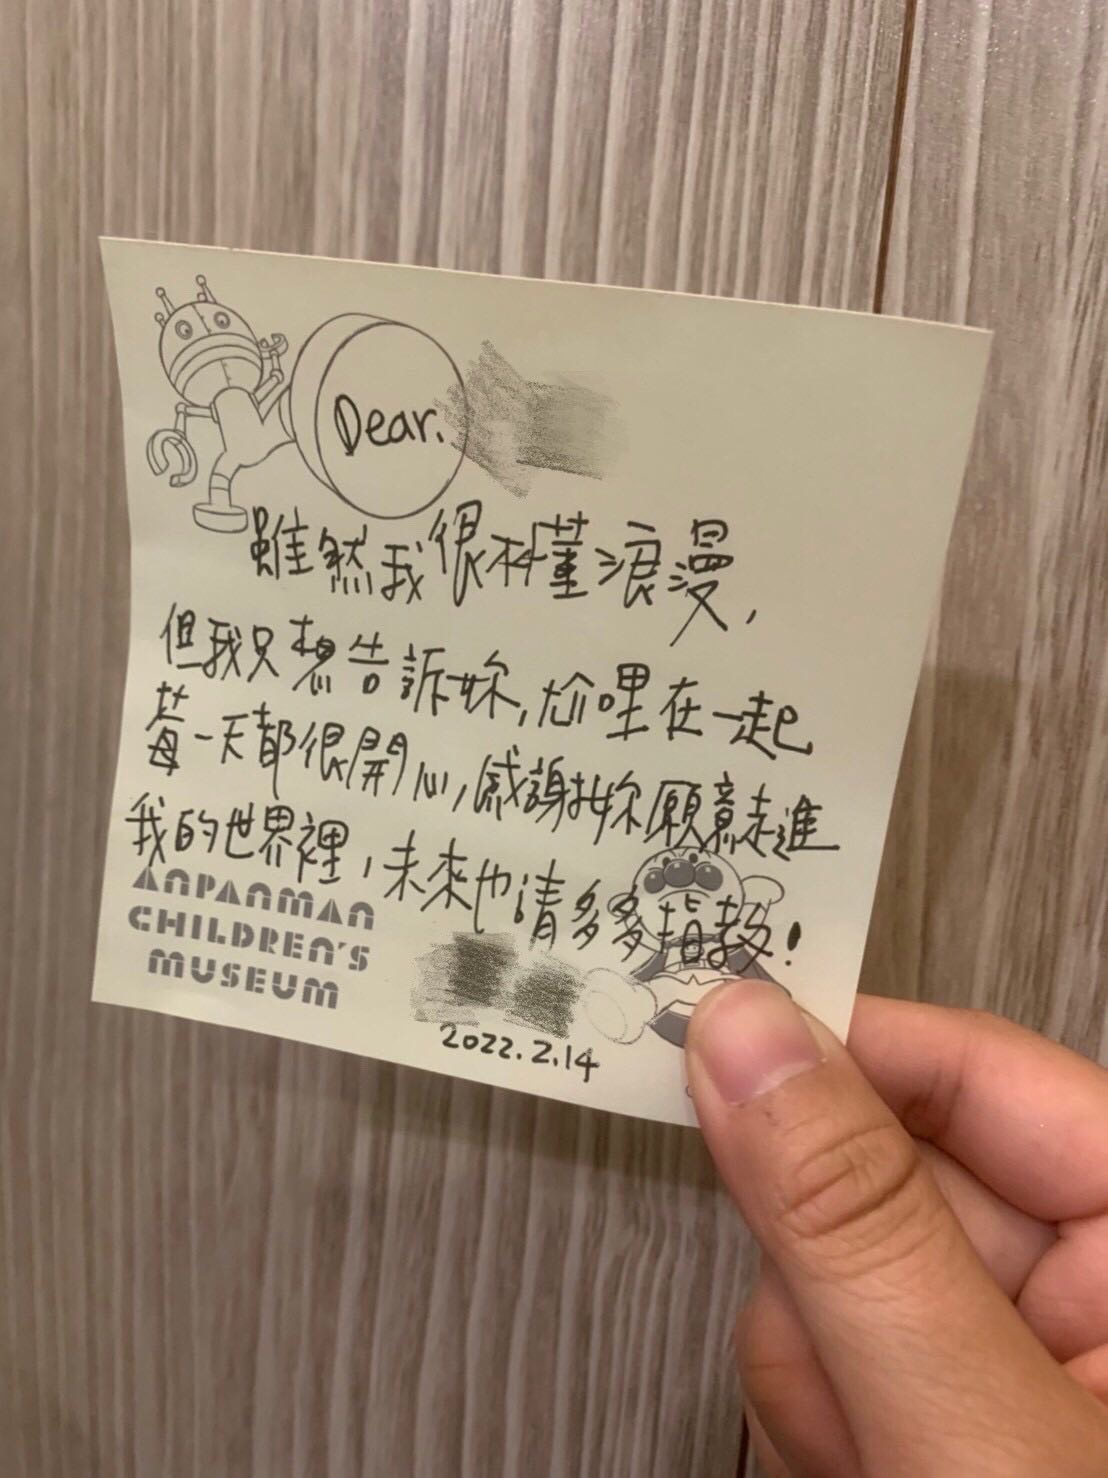 Dear.
雖然我很不懂浪漫,
但我只想告訴妳,尬哩在一起
每一天都很開心,感謝妳願意走進
我的世界裡,未來也請多多指教!
ANPANMAN
CHILDREN'S
MUSEUM
2022.2.14